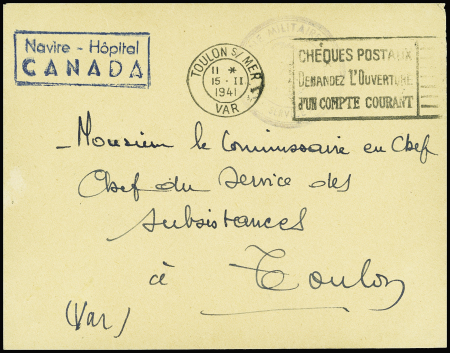 Navire - Hôpital
CANADA
TOULON S/ MER
11 *
15 - II
1941
VAR
MILITAI
CHÈQUES POSTAUX
DEMANDEZ L'OUVERTURE
d'UN COMPTE COURANT
- Monsieur le Commissaire en Chef
Chef du Service des
Subsistances
à Toulon
(Var)